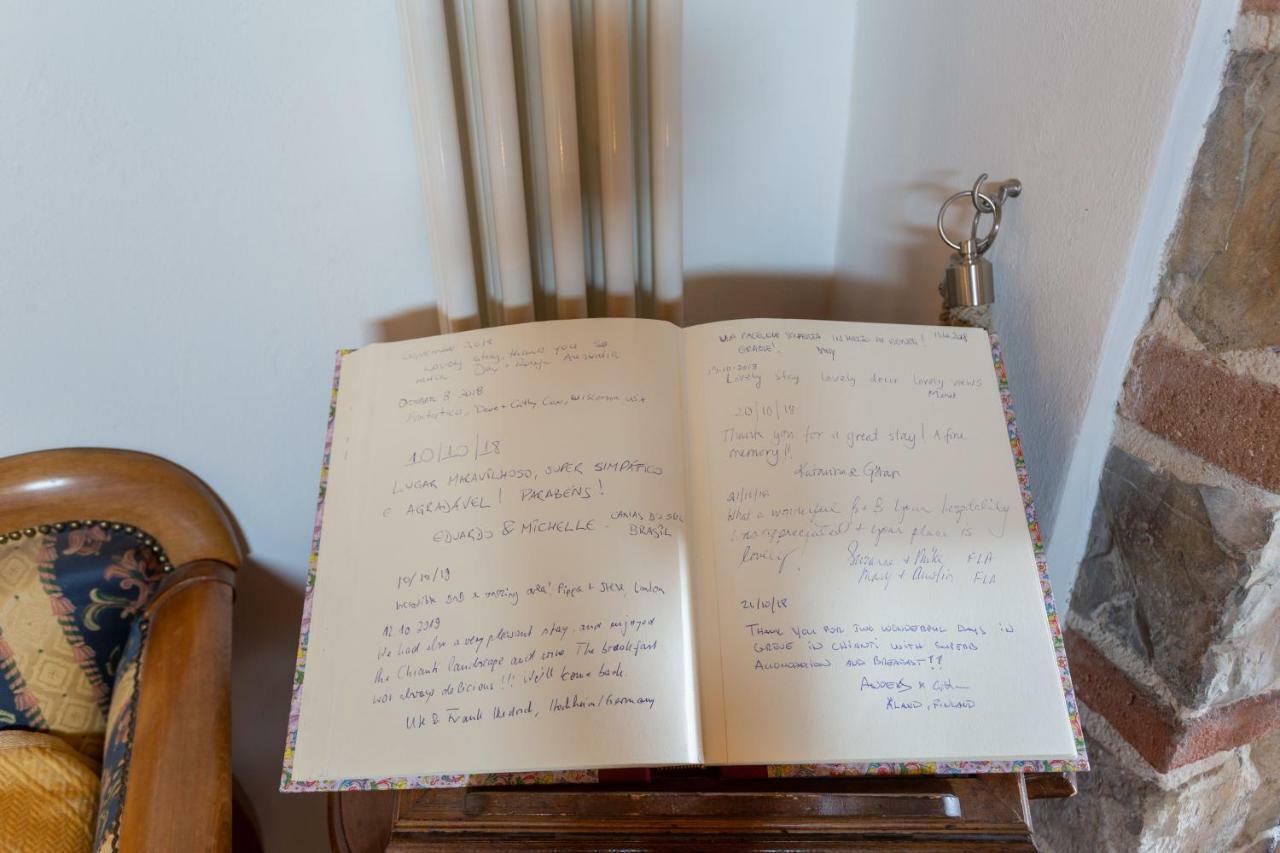 2018
Lovely stay, thank you so
much Australia
October 8 2018
Fantastico, Dave + Cathy Wisconsin USA
10/10/18
LUGAR MARAVILHOSO, SUPER SIMPÁTICO
E AGRADÁVEL! PARABÉNS!
EDUARDO & MICHELLE - CAXIAS DO SUL
BRASIL
10/10/19
Incredible BnB & amazing area! Pippa + Steve, London
12.10 2019
We had also a very pleasant stay and enjoyed
the Chianti landscape and wine. The breakfast
was always delicious!!! We'll come back.
& Frank Hockenheim/Germany
UNA PACE
GRAZIE!
19.10.2018
Lovely stay lovely decor lovely views
20/10/18
Thank you for a great stay! A fine
memory!!
Katarina & Göran
21/10/18
What a wonderful B+B! Your hospitality
was appreciated + your place is
lovely! Suzanne + Mike FLA
Mary + Austin FLA
21/10/18
THANK YOU FOR TWO WONDERFUL DAYS IN
GREVE IN CHIANTI WITH SUPERB
ACCOMODATION AND BREAKFAST!!
ANDERS &
ÅLAND, FINLAND